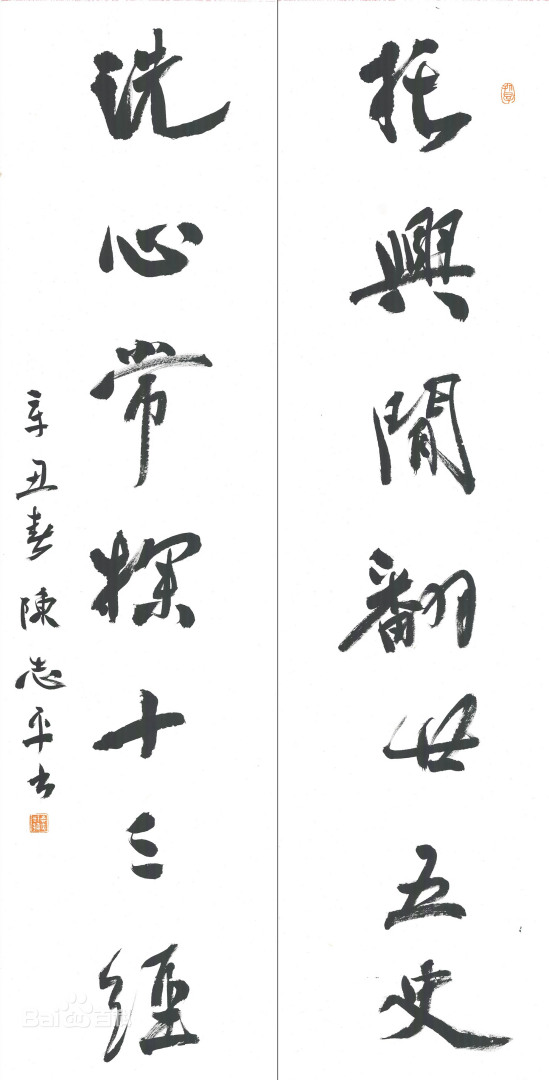 振興閒翻廿五史
洗心常探十三經
辛丑春陳志平书
Bai 百科